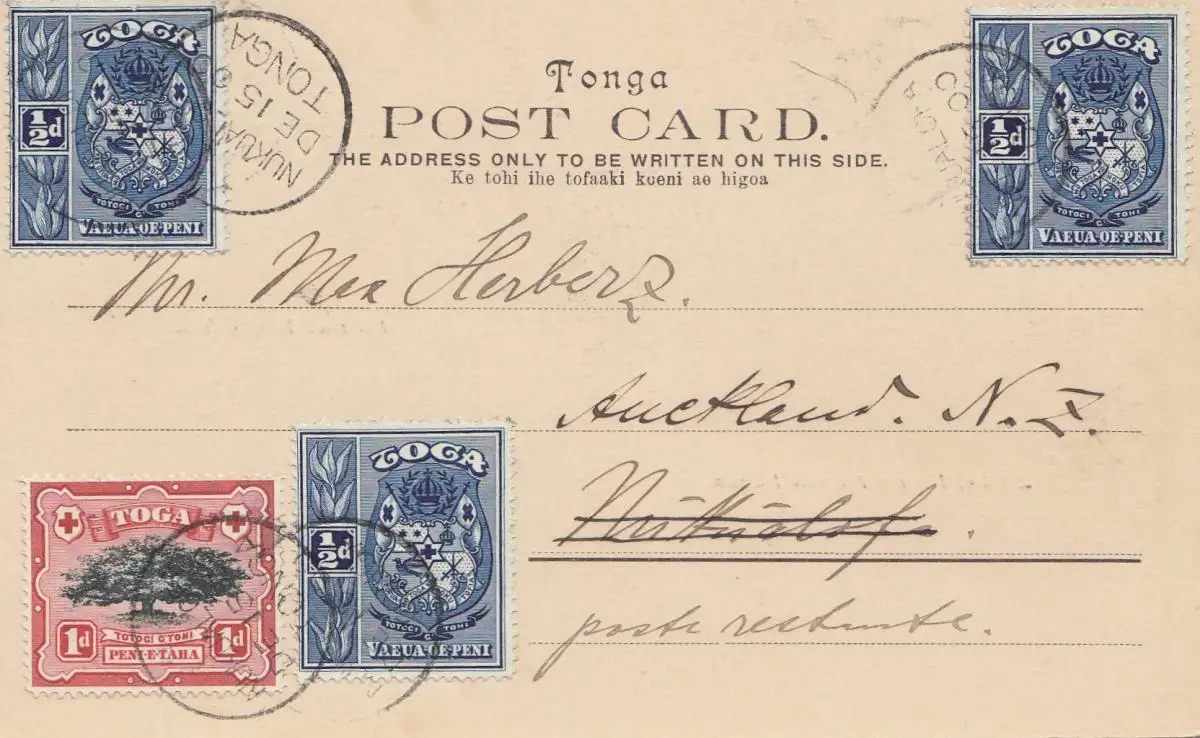 TOGA
½d
TOTOGI G TOHI
VAEUA-OE-PENI
NUKUAL
DE 15
TONGA
Tonga
POST CARD.
THE ADDRESS ONLY TO BE WRITTEN ON THIS SIDE.
Ke tohi ihe tofaaki koeni ae higoa
TOGA
½d
TOTOGI G TOHI
VAEUA-OE-PENI
UALOFA
Mr. Max Herberz.
Auckland. N. Z.
Nukualofa.
poste restante.
TOGA
1d
1d
TOTOGI G TOHI
PENI-E-TAHA
TOGA
½d
TOTOGI G TOHI
VAEUA-OE-PENI